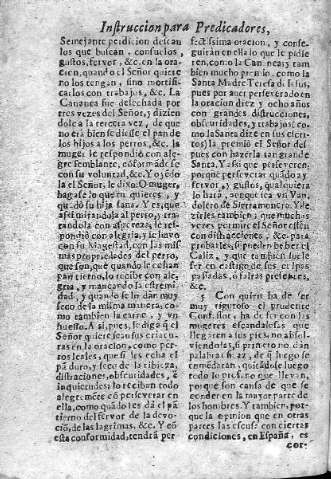 Instruccion para Predicadores,
Semejante perdicion desean
los que buscan, consuelos,
gustos, fervor, &c. en la ora-
cion, quando el Señor quiere
no los tengan, sino mortifi-
carlos con trabajos, &c. La
Cananea fue desechada por
tres vezes del Señor, y dizien
dole a la tercera vez, de que
no era bien se diesse el pan de
los hijos a los perros, &c. la
muger le respondió con ale-
gre semblante, cōformādose
con su voluntad, &c. Y oyēdo
la el Señor, le dixo: O muger,
hagase lo que tu quieres, y
quedó su hija sana. Y es, que
assi mirandola al perro, y tra-
tandola con aspereza, le res-
pondió con alegria, y se huvo
con su Magestad, con las mis-
mas propiedades del perro,
que son, que quando le echan
pan tierno, lo recibe con ale-
gria, y maneando la estremi-
dad, y quando se lo dan muy
seco de la misma manera, co-
mo tambien la carne, y un
huesso. A si, pues, le diga q̄ el
Señor quiere sean sus criatu-
ras en la oracion, como per-
ros leales, que si les echa el
pā duro, y seco de la tibieza,
distraciones, obscuridades, è
inquietudes, lo reciban todo
alegremēte cō perseverar en
ella, como quādo les dá el pā
tierno del fervor de la devo-
ció, de las lagrimas, &c. Y cō
esta conformidad, tendrá per-
fectissima oracion, y conse-
guirán en ella lo que le pidie
ren, como la Cananea; y tam
bien mucho premio, como la
Santa Madre Teresa de Iesus,
pues por aver perseverado en
la oracion diez y ocho años
con grandes distracciones,
obscuridades, y trabajos (co-
mo la Santa dize en sus escri-
tos) la premió el Señor des-
pues con hazerla tan grande
Santa. Y assi que persevere,
porque perseverar quādo ay
fervor, y gustos, qualquiera
lo hará, aunque sea un Van-
dolero de Sierramorena. Y de
zirles tambien, que muchas
vezes permite el Señor estén
con distracciones, &c. para
probarles, si pueden beber el
Caliz, y que tambien suele
ser en castigo de sus culpas
passadas, ó faltas presentes,
&c.
5 Con quien ha de ser
muy riguroso el prudente
Confessor, ha de ser con las
mugeres escandalosas que
llegaren a sus pies, no absol-
viendolas, si primero no dan
palabras eficaz, de q̄ luego se
enmēdarán, quitādose luego
todo lo profano que llevan,
porque son causa de que se
conden en la mayor parte de
los hombres. Y tambien, por-
que la opinion que en otras
partes las escusa con ciertas
condiciones, en España, es
cor-